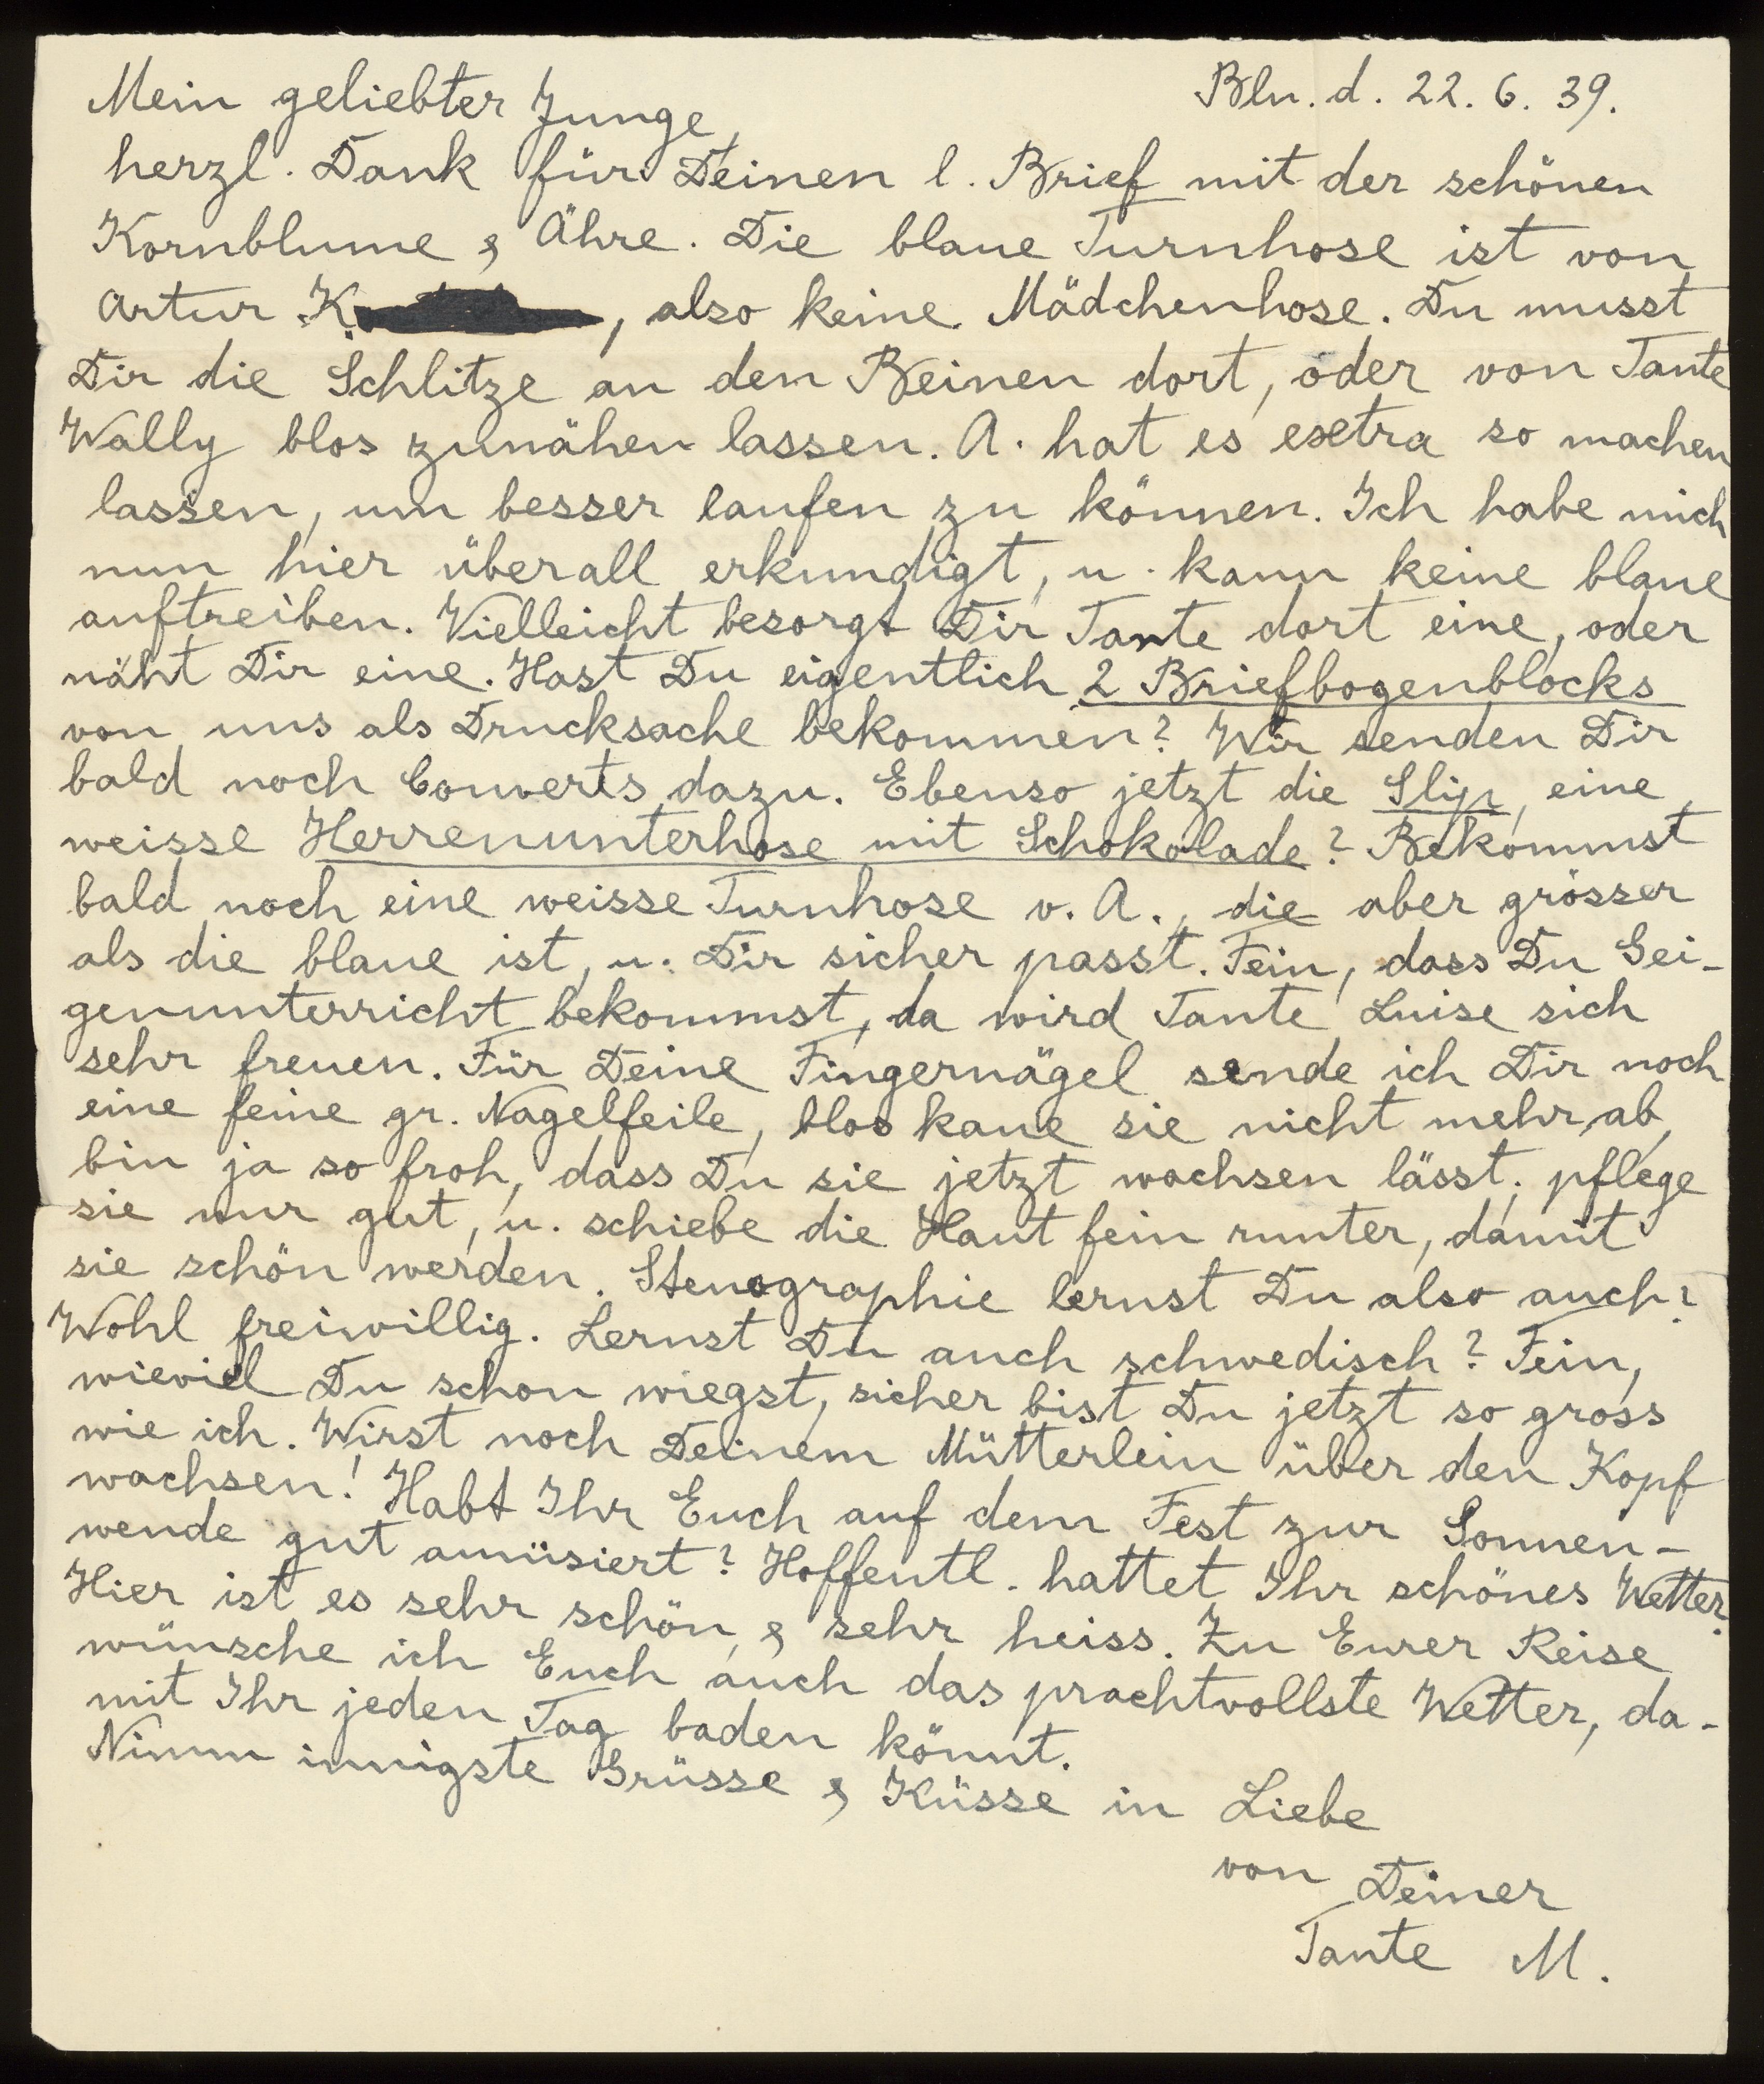 Bln. d. 22. 6. 39.
Mein geliebter Junge,
herzl. Dank für Deinen l. Brief mit der schönen
Kornblume & Ähre. Die blaue Turnhose ist von
Artur K., also keine Mädchenhose. Du musst
Dir die Schlitze an den Beinen dort, oder von Tante
Wally blos zunähen lassen. A. hat es extra so machen
lassen, um besser laufen zu können. Ich habe mich
nun hier überall erkundigt, u. kann keine blaue
auftreiben. Vielleicht besorgt Dir Tante dort eine, oder
näht Dir eine. Hast Du eigentlich 2 Briefbogenblocks
von uns als Drucksache bekommen? Wir senden Dir
bald noch Couverts dazu. Ebenso jetzt die Slip, eine
weisse Herrenunterhose mit Schokolade? Bekommst
bald noch eine weisse Turnhose v. A., die aber grösser
als die blaue ist, u. Dir sicher passt. Fein, dass Du Gei-
genunterricht bekommst, da wird Tante Luise sich
sehr freuen. Für Deine Fingernägel sende ich Dir noch
eine feine gr. Nagelfeile, blos kaue sie nicht mehr ab,
bin ja so froh, dass Du sie jetzt wachsen lässt, pflege
sie nur gut, u. schiebe die Haut fein runter, damit
sie schön werden. Stenographie lernst Du also auch?
Wohl freiwillig. Lernst Du auch schwedisch? Fein,
wieviel Du schon wiegst, sicher bist Du jetzt so gross
wie ich. Wirst noch Deinem Mütterlein über den Kopf
wachsen! Habt Ihr Euch auf dem Fest zur Sonnen-
wende gut amüsiert? Hoffentl. hattet Ihr schönes Wetter.
Hier ist es sehr schön & sehr heiss. Zu Eurer Reise
wünsche ich Euch auch das prachtvollste Wetter, da-
mit Ihr jeden Tag baden könnt.
Nimm innigste Grüsse & Küsse in Liebe
von Deiner
Tante M.